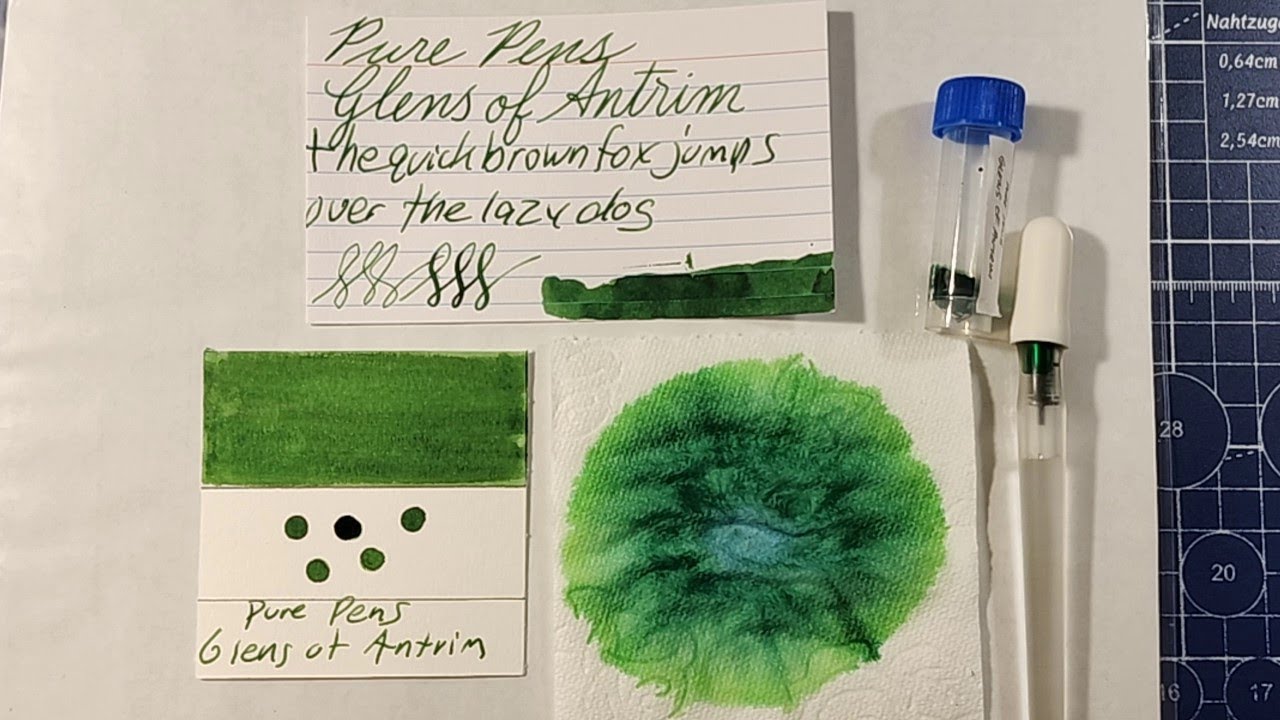 Pure Pens
Glens of Antrim
the quick brown fox jumps
over the lazy dog
Nahtzug
0,64cm
1,27cm
2,54cm
Glens of Antrim
28
20
16
17
Pure Pens
Glens of Antrim